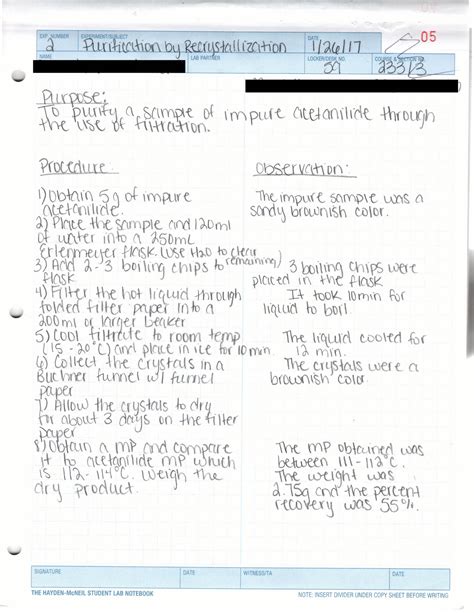 EXP. NUMBER EXPERIMENT/SUBJECT DATE
2 Purification by Recrystallization 1/26/17 05
NAME LAB PARTNER LOCKER/DESK NO. COURSE & SECTION NO.
39 233/3
Purpose:
To purify a sample of impure acetanilide through
the use of filtration.
Procedure:
1) Obtain 5g of impure
acetanilide.
2) Place the sample and 120ml
of water into a 250mL
Erlenmeyer flask. (use H2O to clear
remaining)
3) Add 2-3 boiling chips to
flask
4) Filter the hot liquid through
folded filter paper into a
200ml or larger beaker
5) Cool filtrate to room temp
(15-20°C) and place in ice for 10 min.
6) Collect the crystals in a
Buchner funnel w/ funnel
paper
7) Allow the crystals to dry
for about 3 days on the filter
paper
8) Obtain a MP and compare
it to acetanilide MP which
is 112-114°C. Weigh the
dry product.
Observation:
The impure sample was a
sandy brownish color.
3 boiling chips were
placed in the flask
It took 10min for
liquid to boil.
The liquid cooled for
12 min.
The crystals were a
brownish color.
The MP obtained was
between 111-112°C.
The weight was
2.75g and the percent
recovery was 55%.
SIGNATURE DATE WITNESS/TA DATE
THE HAYDEN-McNEIL STUDENT LAB NOTEBOOK NOTE: INSERT DIVIDER UNDER COPY SHEET BEFORE WRITING